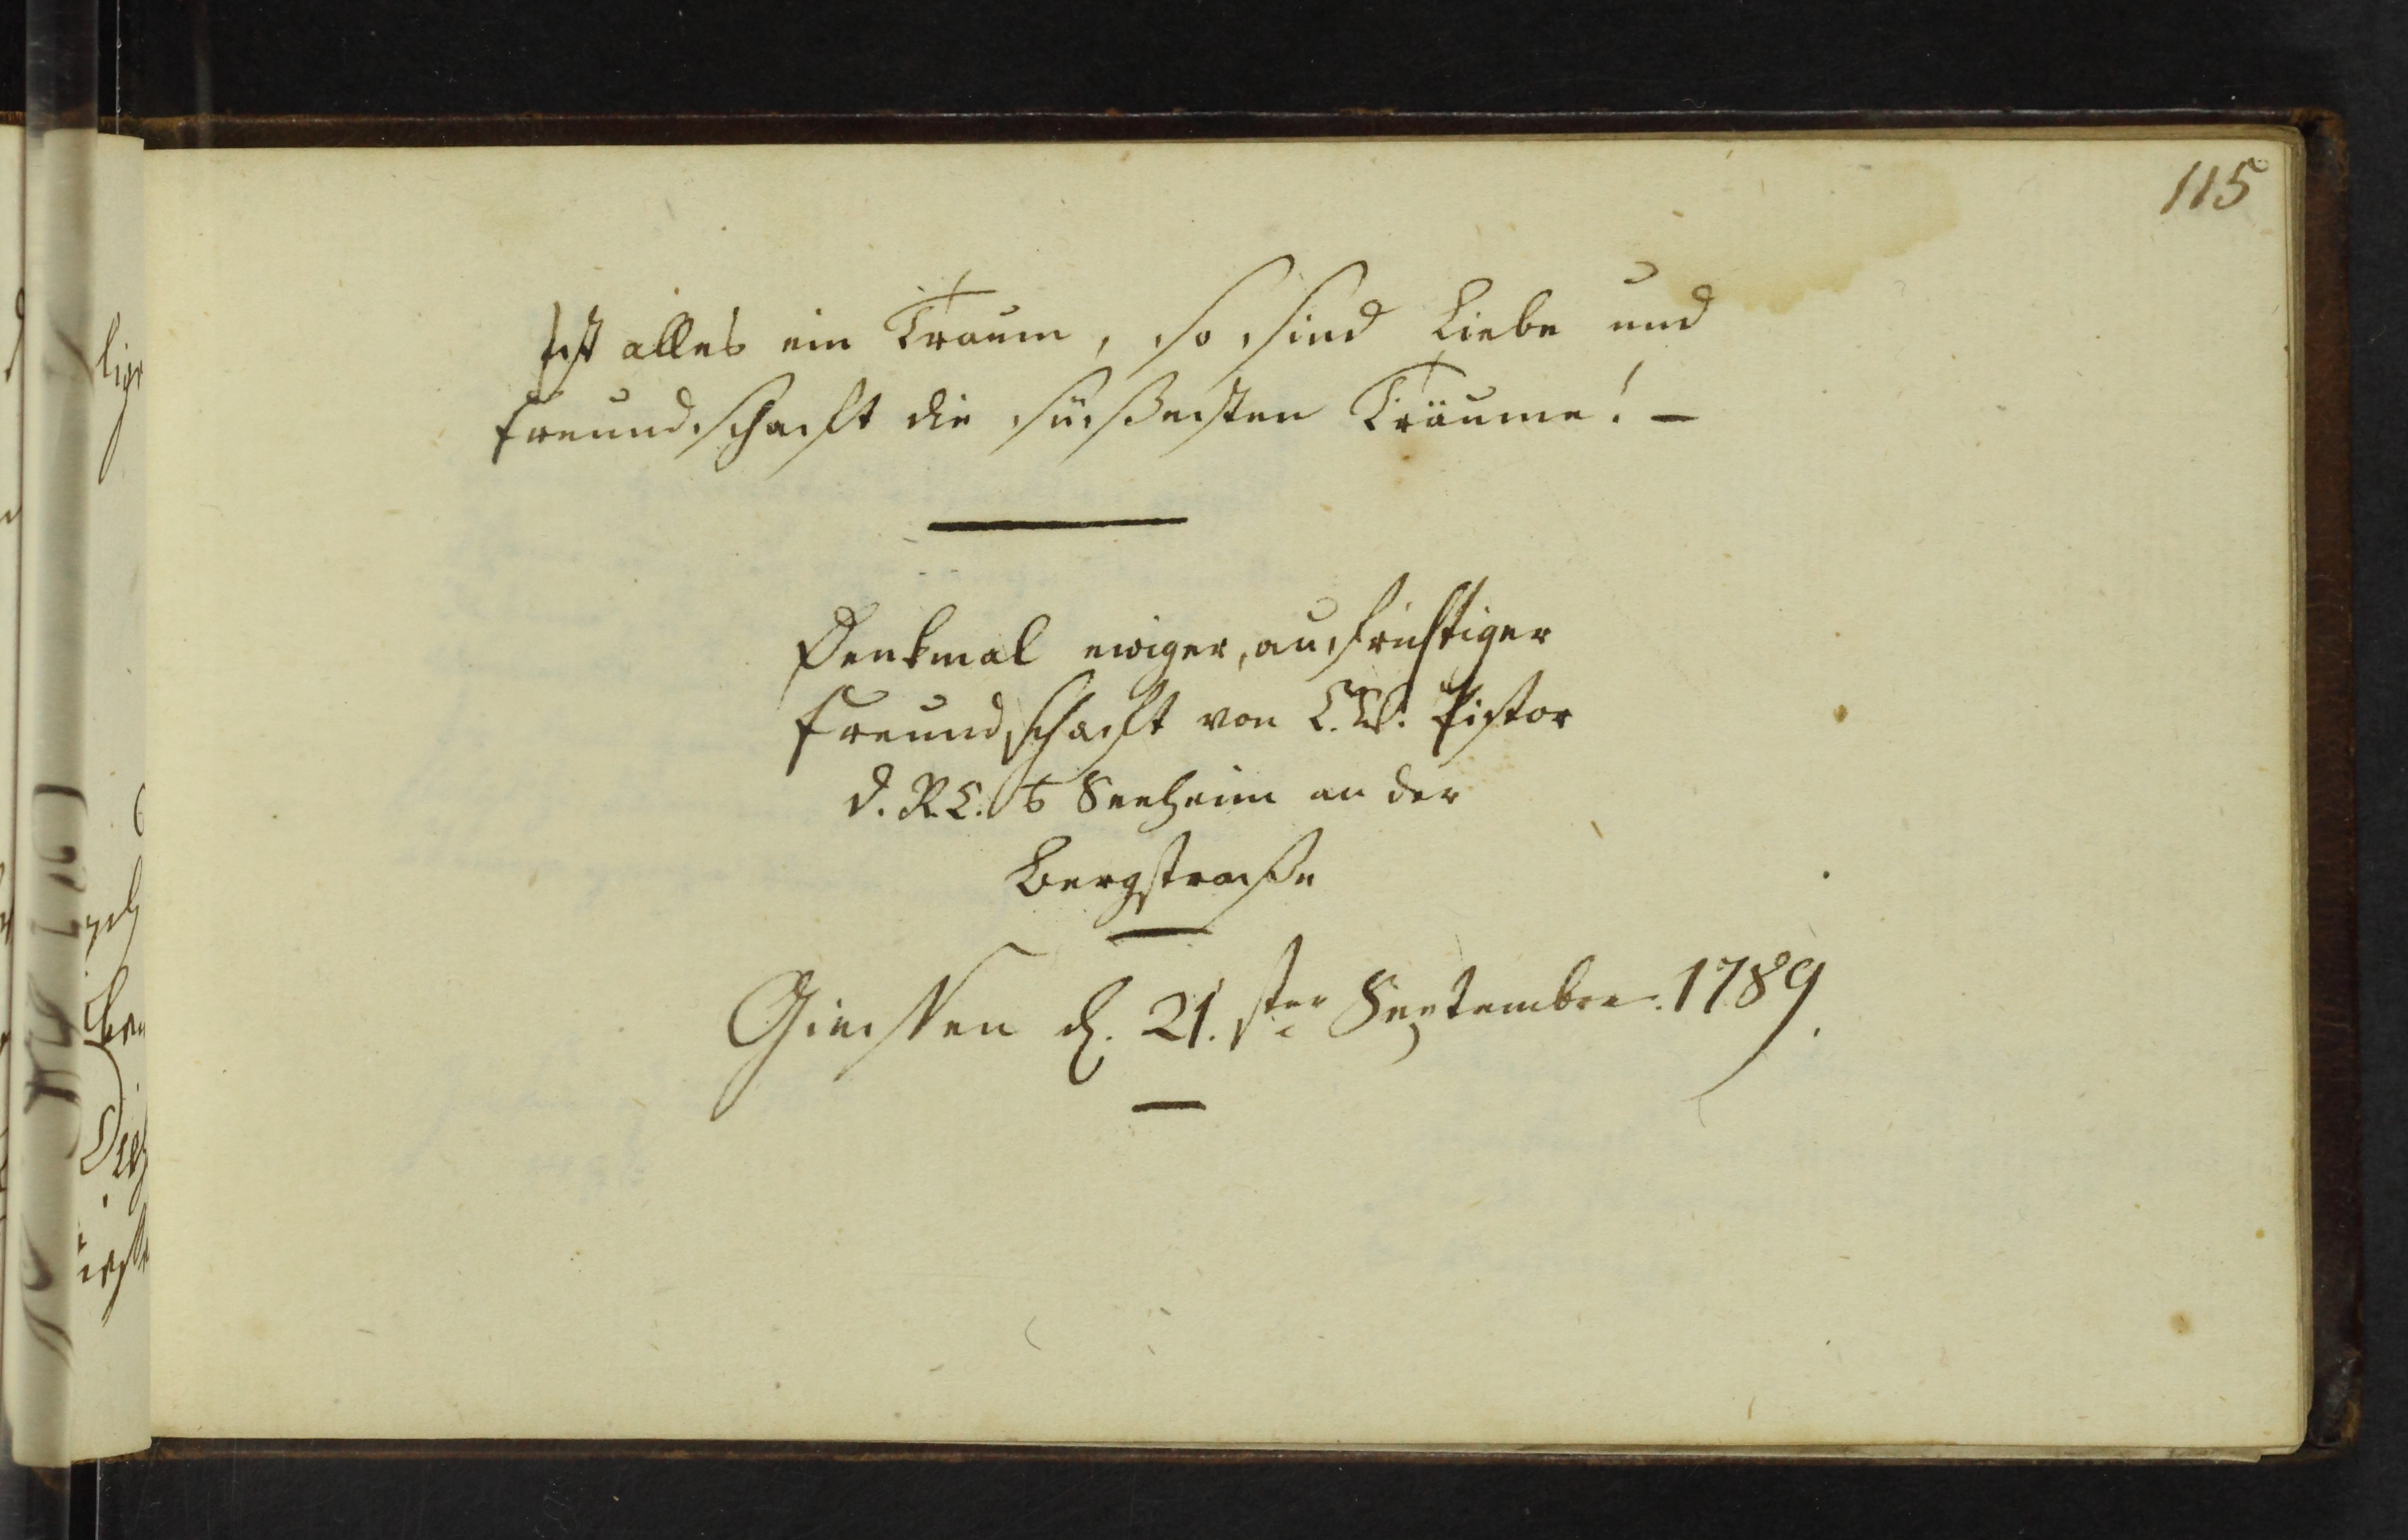 115
Ist alles ein Traum, so sind Liebe und
Freundschaft die süßesten Träume! —
Denkmal ewiger, aufrichtiger
Freundschaft von C. W. Pistor
d. R. C. Seeheim an der
Bergstrasse
Giessen d. 21.sten Septembre. 1789.